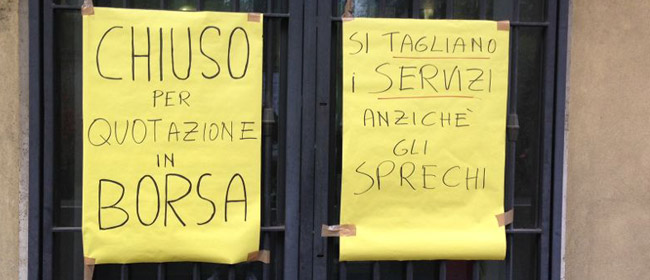 CHIUSO
PER
QUOTAZIONE
IN
BORSA
SI TAGLIANO
i SERVIZI
ANZICHÈ
GLI
SPRECHI